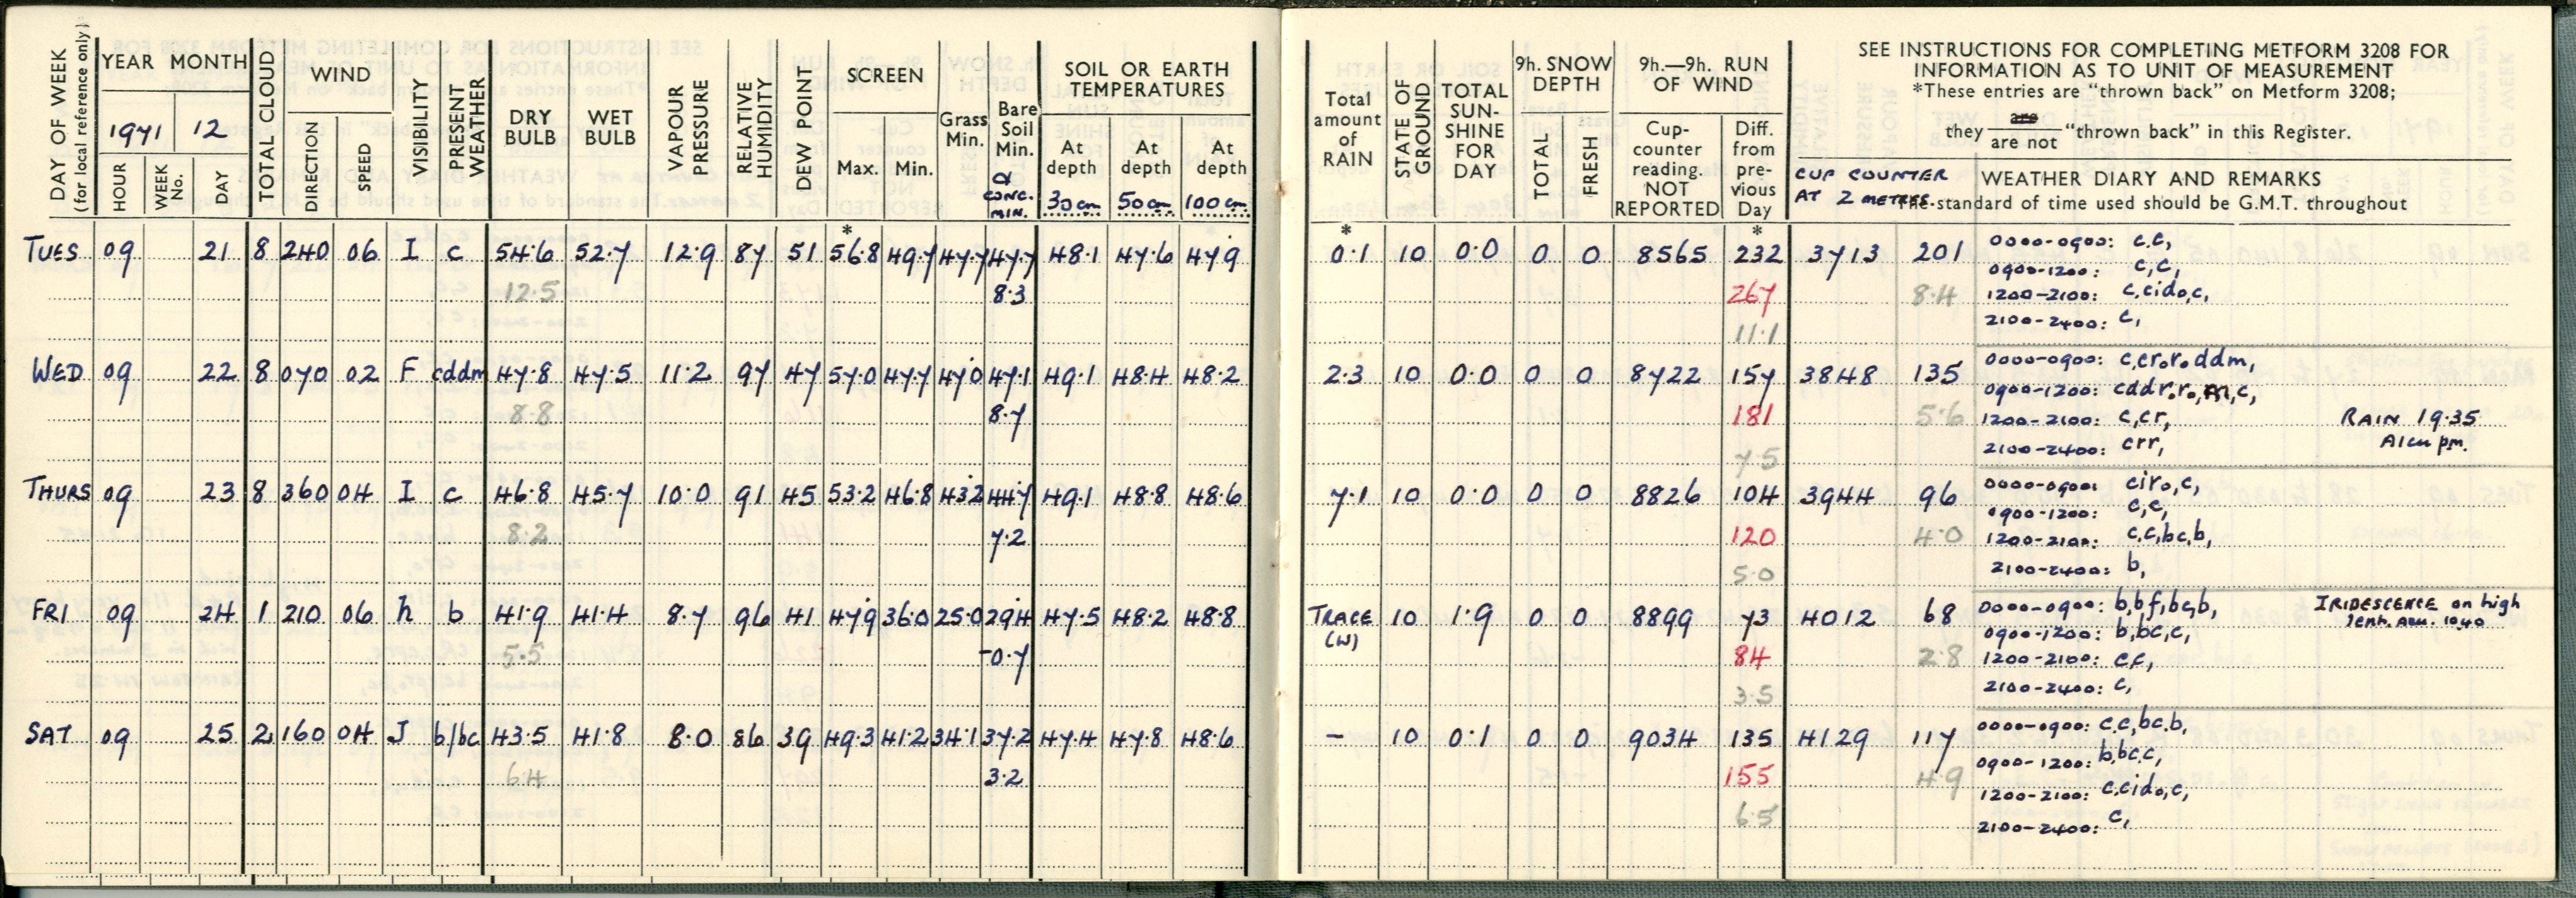 DAY OF WEEK
(for local reference only)
YEAR MONTH
1971 12
HOUR
WEEK No.
DAY
TOTAL CLOUD
WIND
DIRECTION
SPEED
VISIBILITY
PRESENT WEATHER
DRY BULB
WET BULB
VAPOUR PRESSURE
RELATIVE HUMIDITY
DEW POINT
SCREEN
Max. Min.
Grass Min.
Bare Soil Min.
&
CONC.
MIN.
SOIL OR EARTH TEMPERATURES
At depth At depth At depth
30cm 50cm 100cm
Total amount of RAIN
STATE OF GROUND
TOTAL SUN-SHINE FOR DAY
9h. SNOW DEPTH
TOTAL
FRESH
9h.—9h. RUN OF WIND
Cup-counter reading. NOT REPORTED
Diff. from pre-vious Day
SEE INSTRUCTIONS FOR COMPLETING METFORM 3208 FOR
INFORMATION AS TO UNIT OF MEASUREMENT
*These entries are "thrown back" on Metform 3208;
they are
are not "thrown back" in this Register.
CUP COUNTER
AT 2 METRES
WEATHER DIARY AND REMARKS
The standard of time used should be G.M.T. throughout
* * *
TUES 09 21 8 240 06 I c 54.6 52.7 12.9 87 51 56.8 49.7 47.7 47.7 48.1 47.6 47.9 0.1 10 0.0 0 0 8565 232 3713 201 0000-0900: c,c,
0900-1200: c,c,
12.5 8.3 267 8.4 1200-2100: c,cid₀,c,
11.1 2100-2400: c,
WED 09 22 8 070 02 F cddm 47.8 47.5 11.2 97 47 57.0 47.7 47.0 47.1 49.1 48.4 48.2 2.3 10 0.0 0 0 8722 157 3848 135 0000-0900: c,cr₀r₀ddm,
0900-1200: cddr₀r₀,m,c,
8.8 8.7 181 5.6 1200-2100: c,cr, RAIN 19.35
7.5 2100-2400: crr, pm.
THURS 09 23 8 360 04 I c 46.8 45.7 10.0 91 45 53.2 46.8 43.2 44.7 49.1 48.8 48.6 7.1 10 0.0 0 0 8826 104 3944 96 0000-0900: cir₀,c,
0900-1200: c,c,
8.2 7.2 120 4.0 1200-2100: c,c,bc,b,
5.0 2100-2400: b,
FRI 09 24 1 210 06 h b 41.9 41.4 8.7 96 41 47.9 36.0 25.0 29.4 47.5 48.2 48.8 TRACE 10 1.9 0 0 8899 73 4012 68 0000-0900: b,bf,bc,b, IRIDESCENCE on high
(W) 0900-1200: b,bc,c, 1040
5.5 -0.7 84 2.8 1200-2100: cc,
3.5 2100-2400: c,
SAT 09 25 2 160 04 J b/bc 43.5 41.8 8.0 86 39 49.3 41.2 34.1 37.2 47.4 47.8 48.6 – 10 0.1 0 0 9034 135 4129 117 0000-0900: c,c,bc,b,
0900-1200: b,bc,c,
6.4 3.2 155 4.9 1200-2100: c,cid₀,c,
6.5 2100-2400: c,